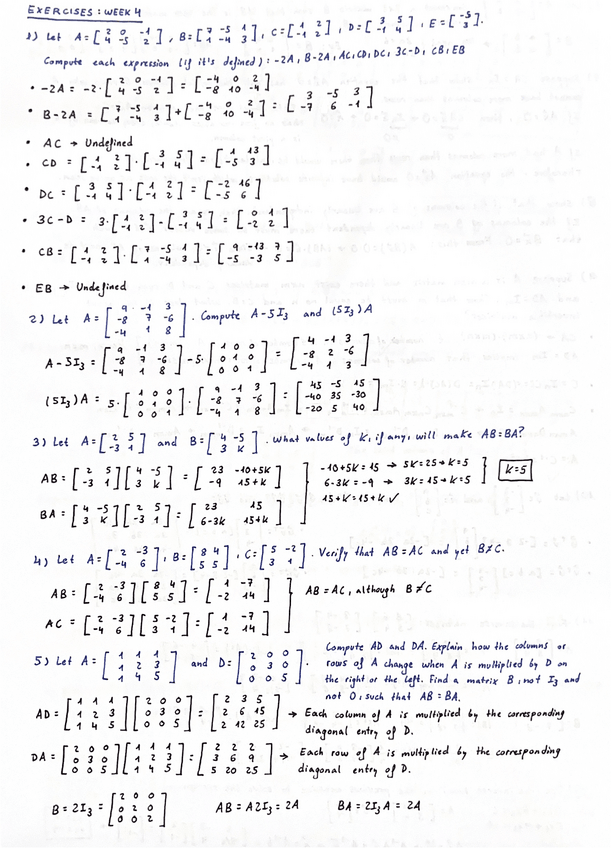 EXERCISES: WEEK 4
1) Let A=[2 0 -1; 4 -5 2], B=[7 -5 1; 1 -4 3], C=[1 2; -1 2], D=[3 5; -1 4], E=[-5; 3].
Compute each expression (if it's defined): -2A, B-2A, AC, CD, DC, 3C-D, CB, EB
• -2A = -2·[2 0 -1; 4 -5 2] = [-4 0 2; -8 10 -4]
• B-2A = [7 -5 1; 1 -4 3] + [-4 0 2; -8 10 -4] = [3 -5 3; -7 6 -1]
• AC → Undefined
• CD = [1 2; -1 2]·[3 5; -1 4] = [1 13; -5 3]
• DC = [3 5; -1 4]·[1 2; -1 2] = [-2 16; -5 6]
• 3C-D = 3·[1 2; -1 2]-[3 5; -1 4] = [0 1; -2 2]
• CB = [1 2; -1 2]·[7 -5 1; 1 -4 3] = [9 -13 7; -5 -3 5]
• EB → Undefined
2) Let A = [9 -1 3; -8 7 -6; -4 1 8]. Compute A-5I₃ and (5I₃)A
A-5I₃ = [9 -1 3; -8 7 -6; -4 1 8] -5·[1 0 0; 0 1 0; 0 0 1] = [4 -1 3; -8 2 -6; -4 1 3]
(5I₃)A = 5·[1 0 0; 0 1 0; 0 0 1]·[9 -1 3; -8 7 -6; -4 1 8] = [45 -5 15; -40 35 -30; -20 5 40]
3) Let A=[2 5; -3 1] and B=[4 -5; 3 K]. What values of K, if any, will make AB=BA?
AB = [2 5; -3 1][4 -5; 3 K] = [23 -10+5K; -9 15+K]
BA = [4 -5; 3 K][2 5; -3 1] = [23 15; 6-3K 15+K]
-10+5K = 15 → 5K=25 → K=5
6-3K = -9 → 3K=15 → K=5
15+K = 15+K ✓
K=5
4) Let A=[2 -3; -4 6], B=[8 4; 5 5], C=[5 -2; 3 1]. Verify that AB=AC and yet B≠C.
AB = [2 -3; -4 6][8 4; 5 5] = [1 -7; -2 14]
AC = [2 -3; -4 6][5 -2; 3 1] = [1 -7; -2 14]
AB=AC, although B≠C
5) Let A = [1 1 1; 1 2 3; 1 4 5] and D = [2 0 0; 0 3 0; 0 0 5].
Compute AD and DA. Explain how the columns or
rows of A change when A is multiplied by D on
the right or the left. Find a matrix B, not I₃ and
not 0, such that AB = BA.
AD = [1 1 1; 1 2 3; 1 4 5][2 0 0; 0 3 0; 0 0 5] = [2 3 5; 2 6 15; 2 12 25] → Each column of A is multiplied by the corresponding
diagonal entry of D.
DA = [2 0 0; 0 3 0; 0 0 5][1 1 1; 1 2 3; 1 4 5] = [2 2 2; 3 6 9; 5 20 25] → Each row of A is multiplied by the corresponding
diagonal entry of D.
B = 2I₃ = [2 0 0; 0 2 0; 0 0 2] AB = A2I₃ = 2A BA = 2I₃A = 2A